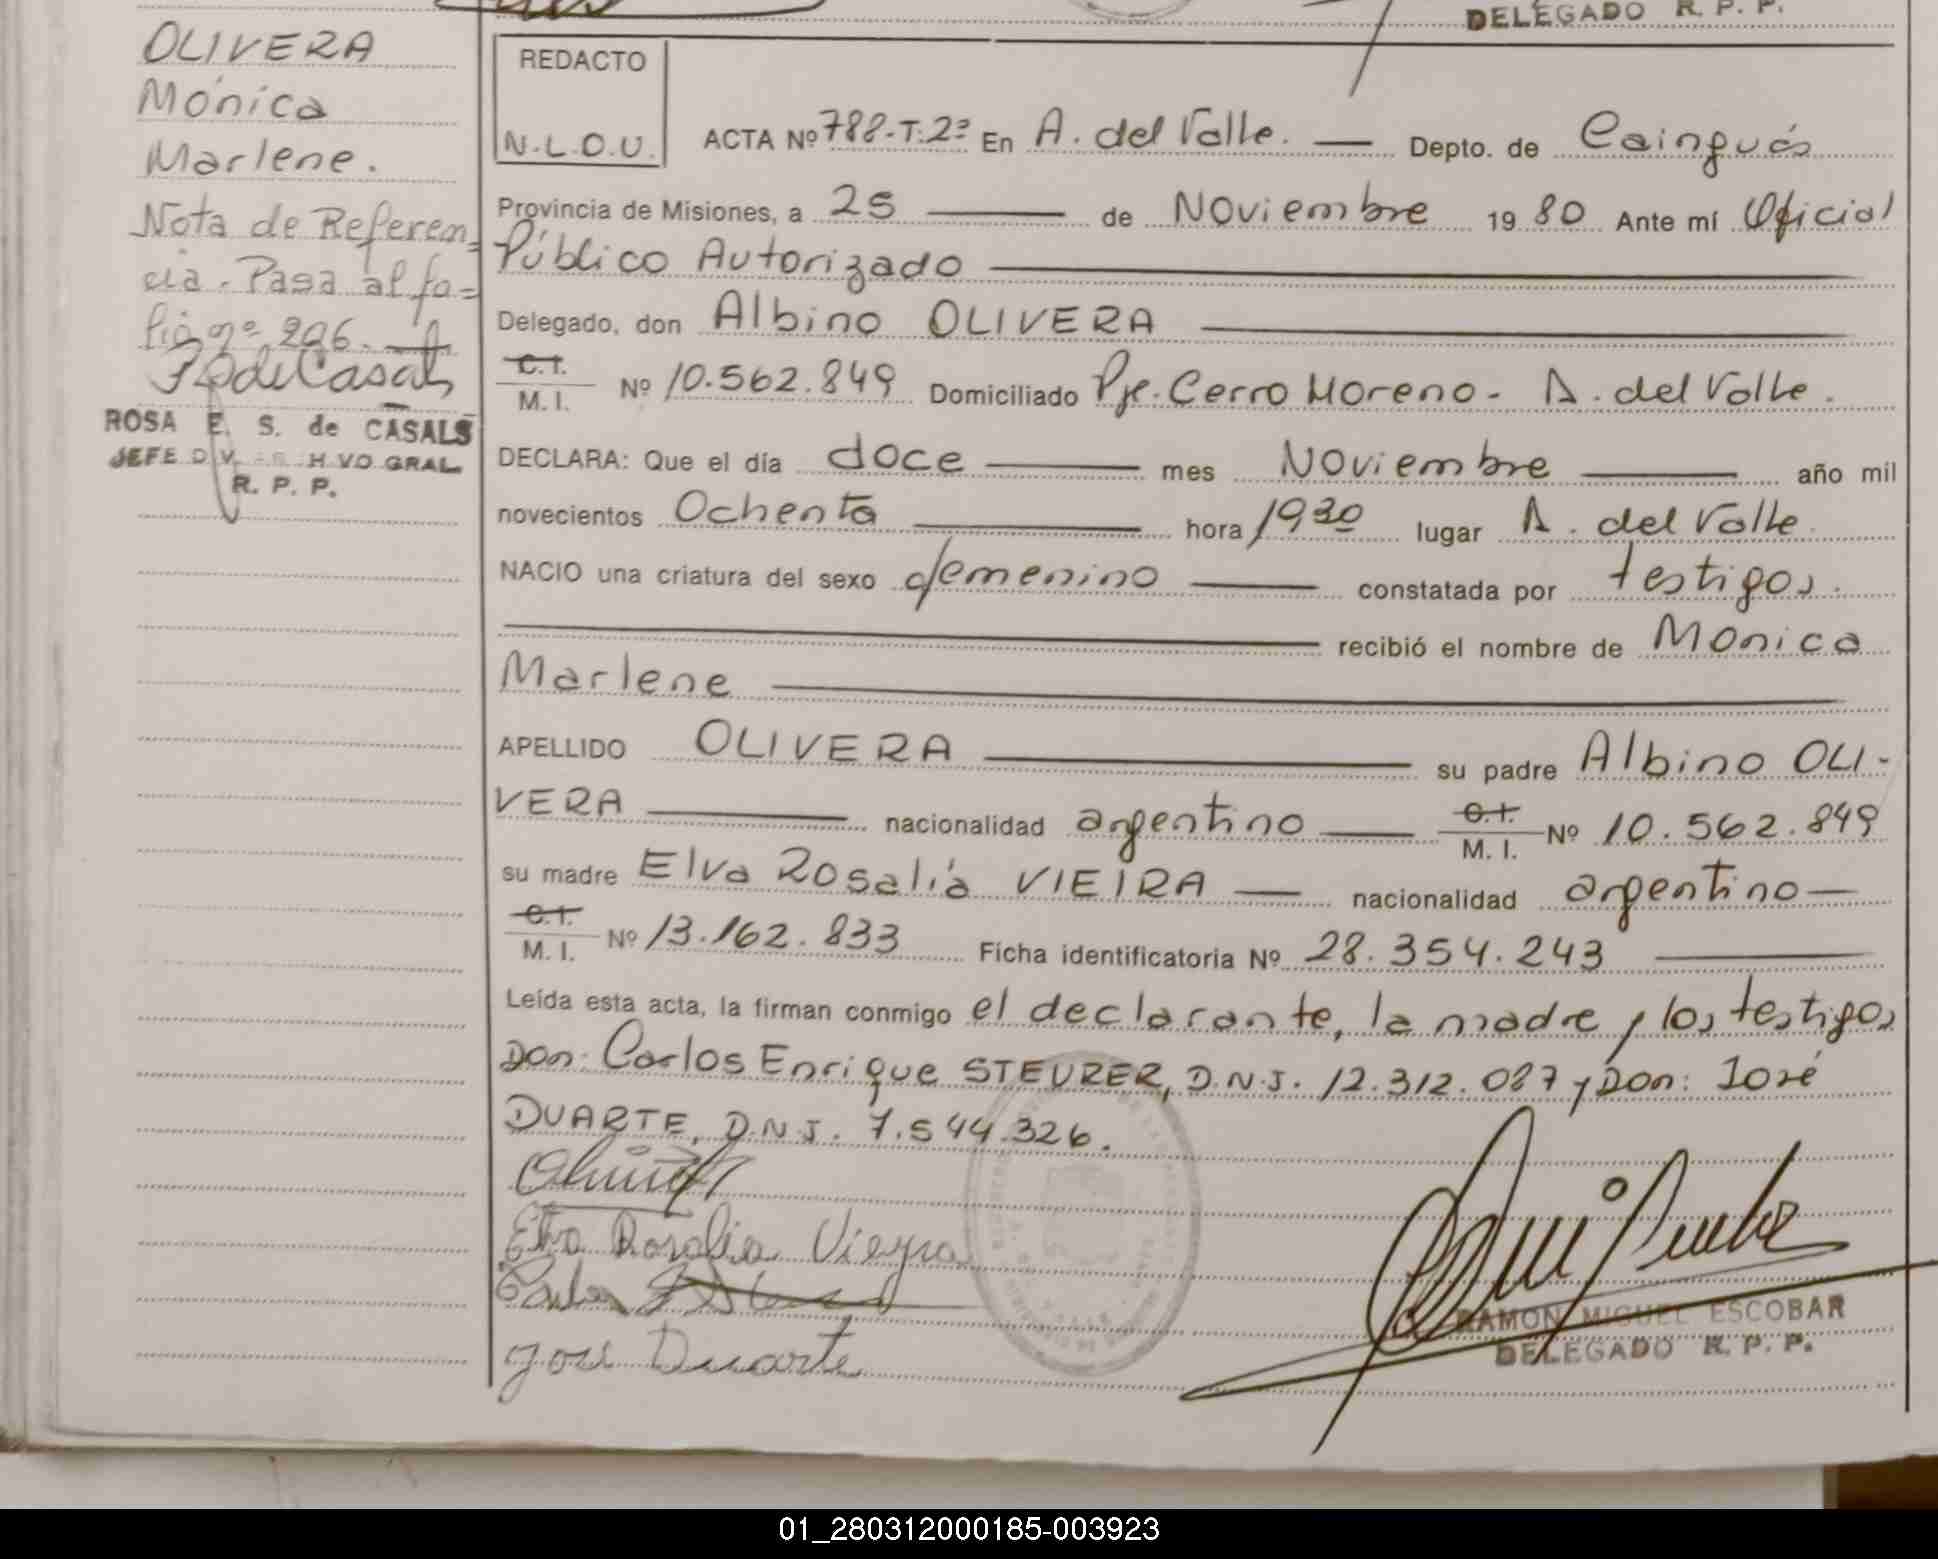 DELEGADO R. P. P.
OLIVERA
Mónica
Marlene.
Nota de Referen=
cia. Pasa al fo=
lio nº 296.
ROSA E. S. de CASALS
JEFE DIV. ARCHIVO GRAL.
R. P. P.
REDACTO
N.L.O.U.
ACTA Nº 788-T:2º En A. del Valle. — Depto. de Cainguás
Provincia de Misiones, a 25 — de Noviembre 1980 Ante mí Oficial
Público Autorizado —
Delegado, don Albino OLIVERA —
C.I.
M. I. Nº 10.562.849 Domiciliado Pje. Cerro Moreno - A. del Valle.
DECLARA: Que el día doce — mes Noviembre — año mil
novecientos Ochenta — hora 1930 lugar A. del Valle.
NACIO una criatura del sexo femenino — constatada por testigos.
— recibió el nombre de Mónica
Marlene —
APELLIDO OLIVERA — su padre Albino OLI-
VERA — nacionalidad argentino — C.I. M. I. Nº 10.562.849
su madre Elva Rosalía VIEIRA — nacionalidad argentino —
C.I.
M. I. Nº 13.162.833 Ficha identificatoria Nº 28.354.243 —
Leída esta acta, la firman conmigo el declarante, la madre y los testigos
Don: Carlos Enrique STEURER, D.N.I. 12.312.087 y Don: José
DUARTE, D.N.I. 7.544.326.
Elva Rosalia Vieyra
José Duarte
RAMON MIGUEL ESCOBAR
DELEGADO R. P. P.
01_280312000185-003923